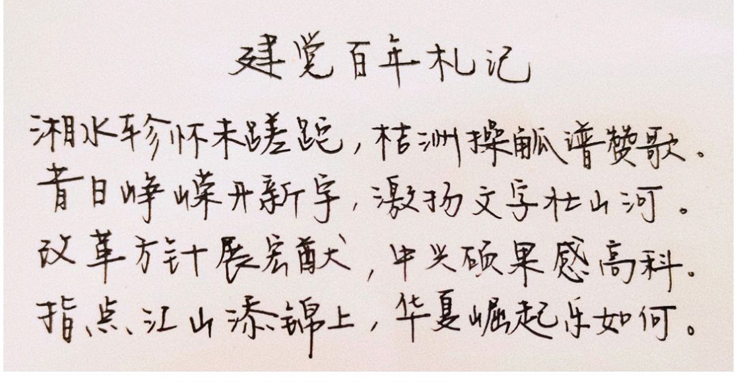 建党百年札记
湘水轸怀未蹉跎，桔洲操觚谱赞歌。
昔日峥嵘开新宇，激扬文字壮山河。
改革方针展宏猷，中兴硕果感高科。
指点江山添锦上，华夏崛起乐如何。